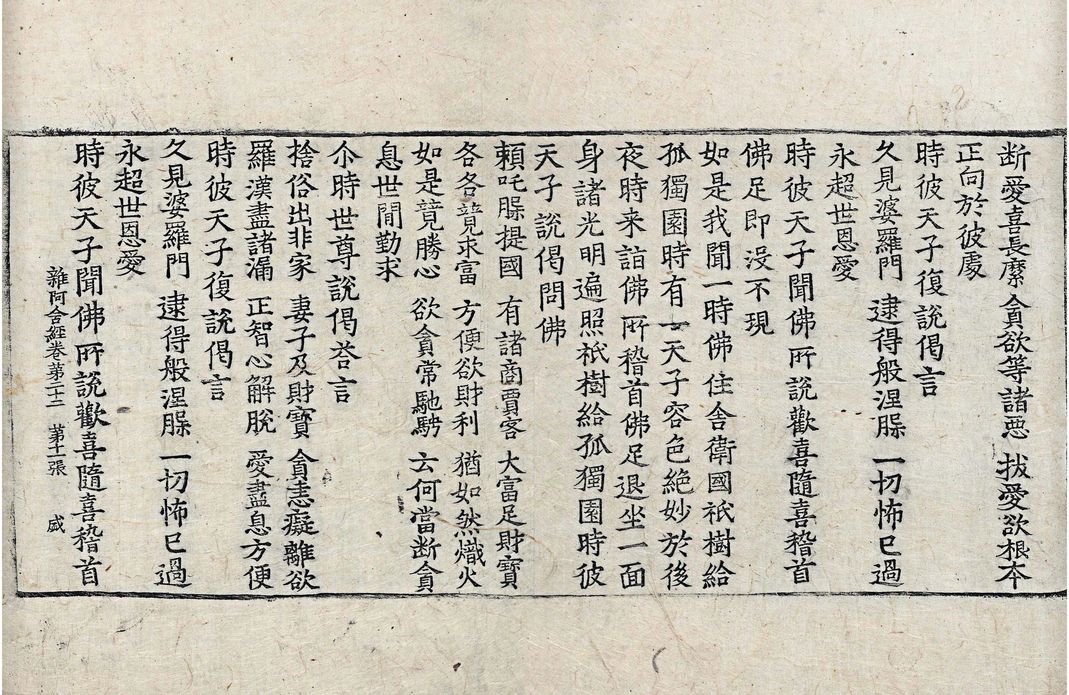 断愛喜長縻 貪欲等諸惡 拔愛欲根夲
正向於彼處
時彼天子復說偈言
久見婆羅門 逮得般涅槃 一切怖已過
永超世恩愛
時彼天子聞佛所說歡喜隨喜稽首
佛足即没不現
如是我聞一時佛住舍衛國祇樹給
孤獨園時有一天子容色絶妙於後
夜時来詣佛所稽首佛足退坐一面
身諸光明遍照祇樹給孤獨園時彼
天子說偈問佛
賴吒槃提國 有諸商賈客 大富足財寶
各各競求富 方便欲財利 猶如然熾火
如是競勝心 欲貪常馳騁 云何當断貪
息世閒勤求
尒時世尊說偈荅言
捨俗出非家 妻子及財寶 貪恚癡離欲
羅漢盡諸漏 正智心解脫 愛盡息方便
時彼天子復說偈言
久見婆羅門 逮得般涅槃 一切怖已過
永超世恩愛
雜阿含經卷第二十二 第十一張 盛
時彼天子聞佛所說歡喜隨喜稽首